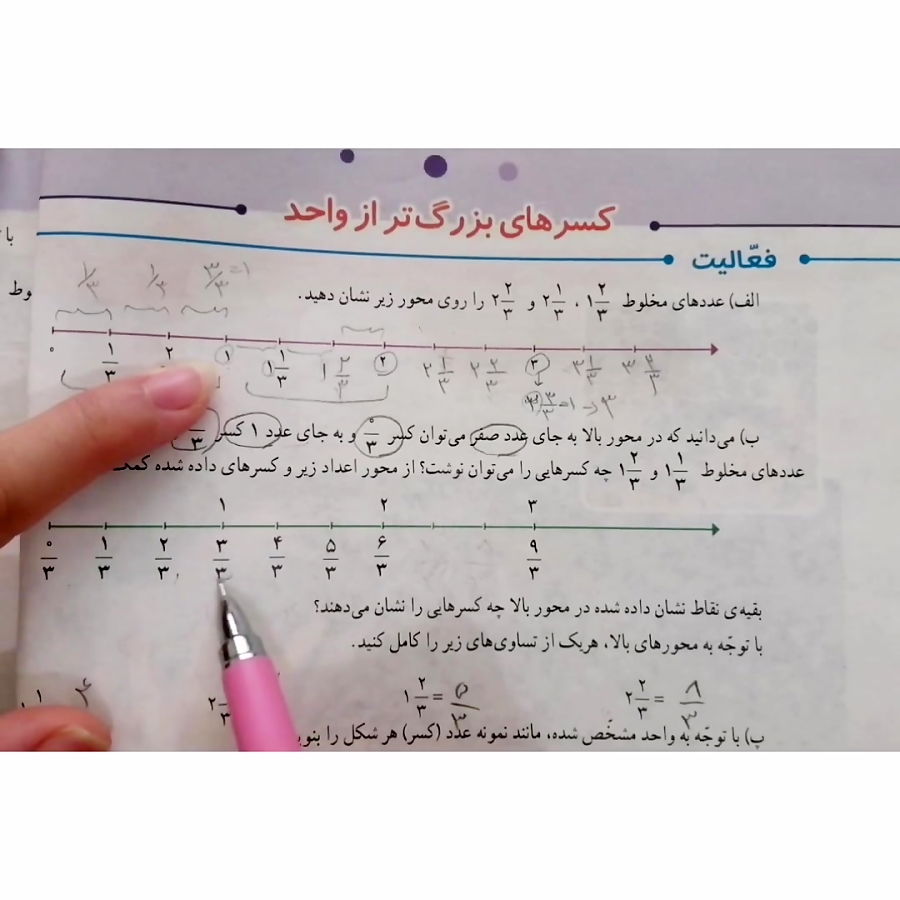 کسرهای بزرگ‌تر از واحد
فعّالیت
با
وط
۱/۳ ۱/۳ ۳/۳ =۱
الف) عددهای مخلوط ۱ ۲/۳ ، ۲ ۱/۳ و ۲ ۲/۳ را روی محور زیر نشان دهید.
۰ ۱/۳ ۲ ۱ ۱ ۱/۳ ۱ ۲/۳ ۲ ۲ ۱/۳ ۲ ۲/۳ ۳ ۳ ۱/۳ ۳ ۲/۳
۳/۳ =۱ → ۳
ب) می‌دانید که در محور بالا به جای عدد صفر می‌توان کسر ۰/۳ و به جای عدد ۱ کسر
عددهای مخلوط ۱ ۱/۳ و ۱ ۲/۳ چه کسرهایی را می‌توان نوشت؟ از محور اعداد زیر و کسرهای داده شده کمک
۱ ۲ ۳
۰/۳ ۱/۳ ۲/۳ ۳/۳ ۴/۳ ۵/۳ ۶/۳ ۹/۳
بقیه‌ی نقاط نشان داده شده در محور بالا چه کسرهایی را نشان می‌دهند؟
با توجّه به محورهای بالا، هریک از تساوی‌های زیر را کامل کنید.
۲ ۲/۳ = ۸/۳ ۱ ۲/۳ = ۵/۳ ۲ ۱ ۴
پ) با توجّه به واحد مشخّص شده، مانند نمونه عدد (کسر) هر شکل را